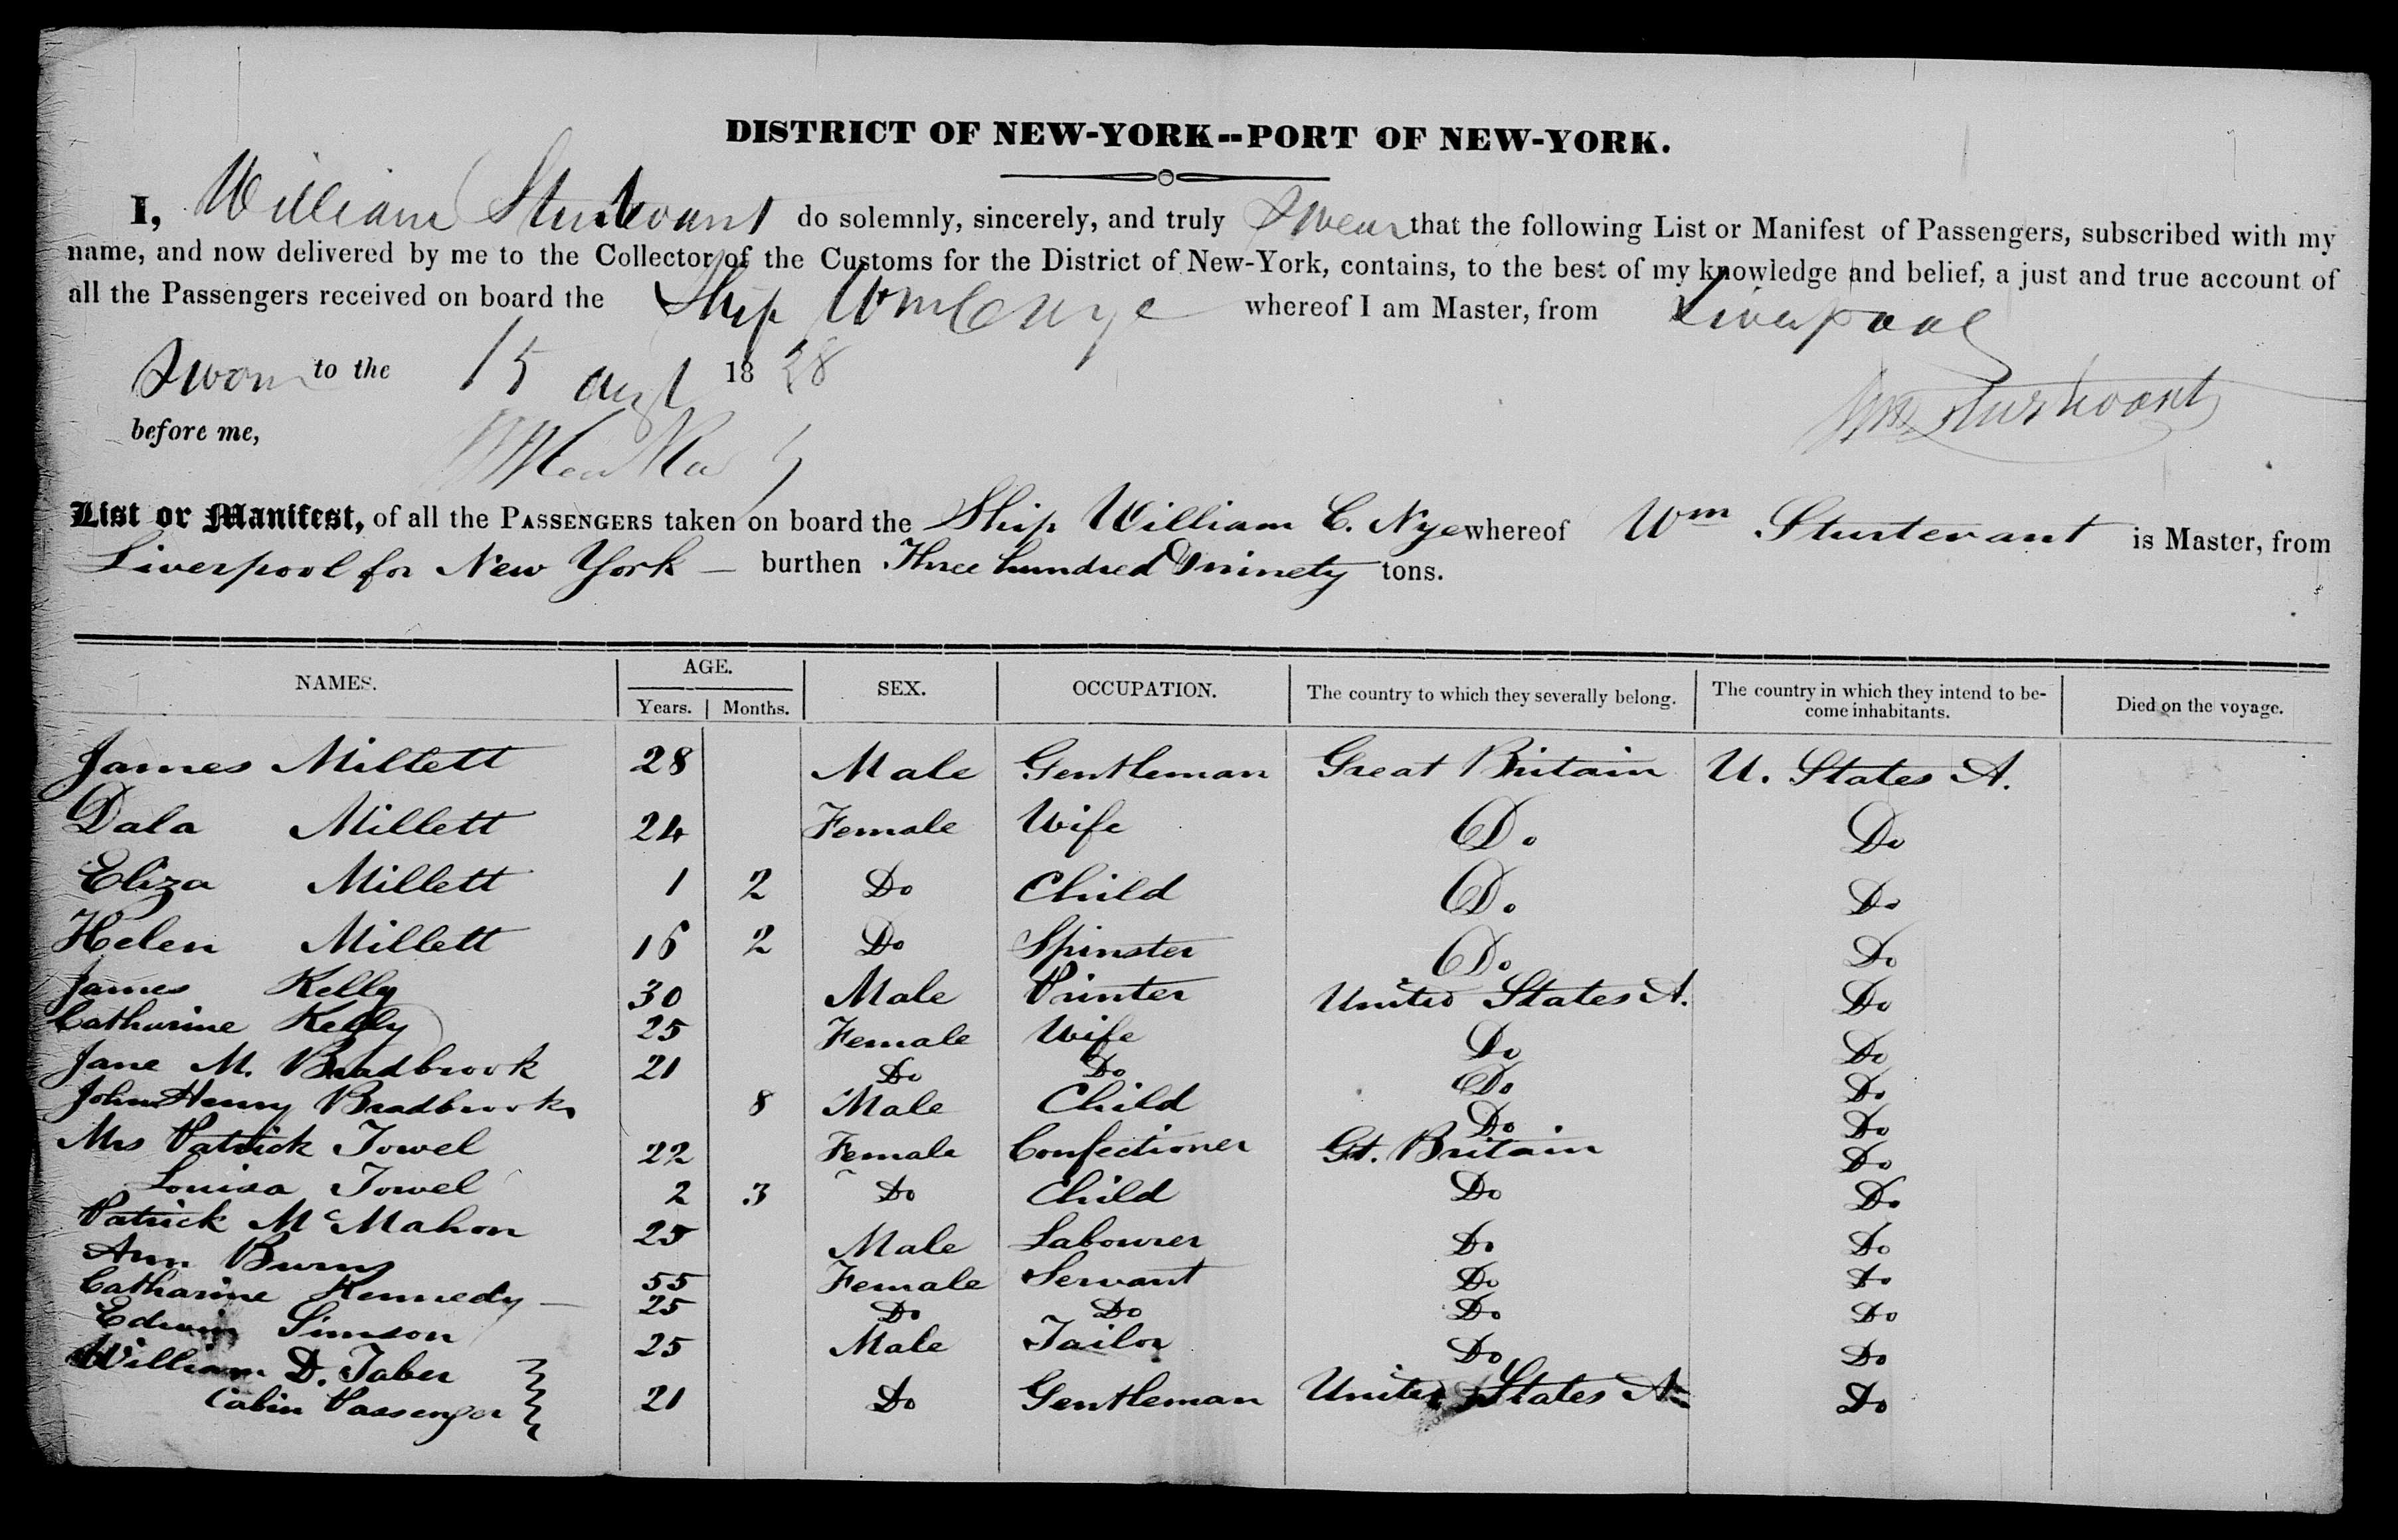 DISTRICT OF NEW-YORK--PORT OF NEW-YORK.
I, William Sturtevant do solemnly, sincerely, and truly Swear that the following List or Manifest of Passengers, subscribed with my
name, and now delivered by me to the Collector of the Customs for the District of New-York, contains, to the best of my knowledge and belief, a just and true account of
all the Passengers received on board the Ship Wm C Nye whereof I am Master, from Liverpool
Sworn to the 15 1828
Wm Sturtevant
before me,
List or Manifest, of all the PASSENGERS taken on board the Ship William C. Nye whereof Wm Sturtevant is Master, from
Liverpool for New York — burthen Three hundred & ninety tons.
NAMES. AGE. SEX. OCCUPATION. The country to which they severally belong. The country in which they intend to be- Died on the voyage.
Years. Months. come inhabitants.
James Millett 28 Male Gentleman Great Britain U. States A.
Dala Millett 24 Female Wife Do. Do
Eliza Millett 1 2 Do Child Do. Do
Helen Millett 16 2 Do Spinster Do. Do
James Kelly 30 Male Printer United States A. Do
Catharine Kelly 25 Female Wife Do Do
Jane M. Bradbrook 21 Do Do Do Do
John Henry Bradbrook 8 Male Child Do Do
Mrs Patrick Towel 22 Female Confectioner Gt. Britain Do
Louisa Towel 2 3 Do Child Do Do
Patrick McMahon 25 Male Labourer Do Do
Ann Burns 55 Female Servant Do Do
Catharine Kennedy — 25 Do Do Do Do
Edwin Simson 25 Male Tailor Do Do
William D. Taber
Cabin Passenger 21 Do Gentleman United States A. Do